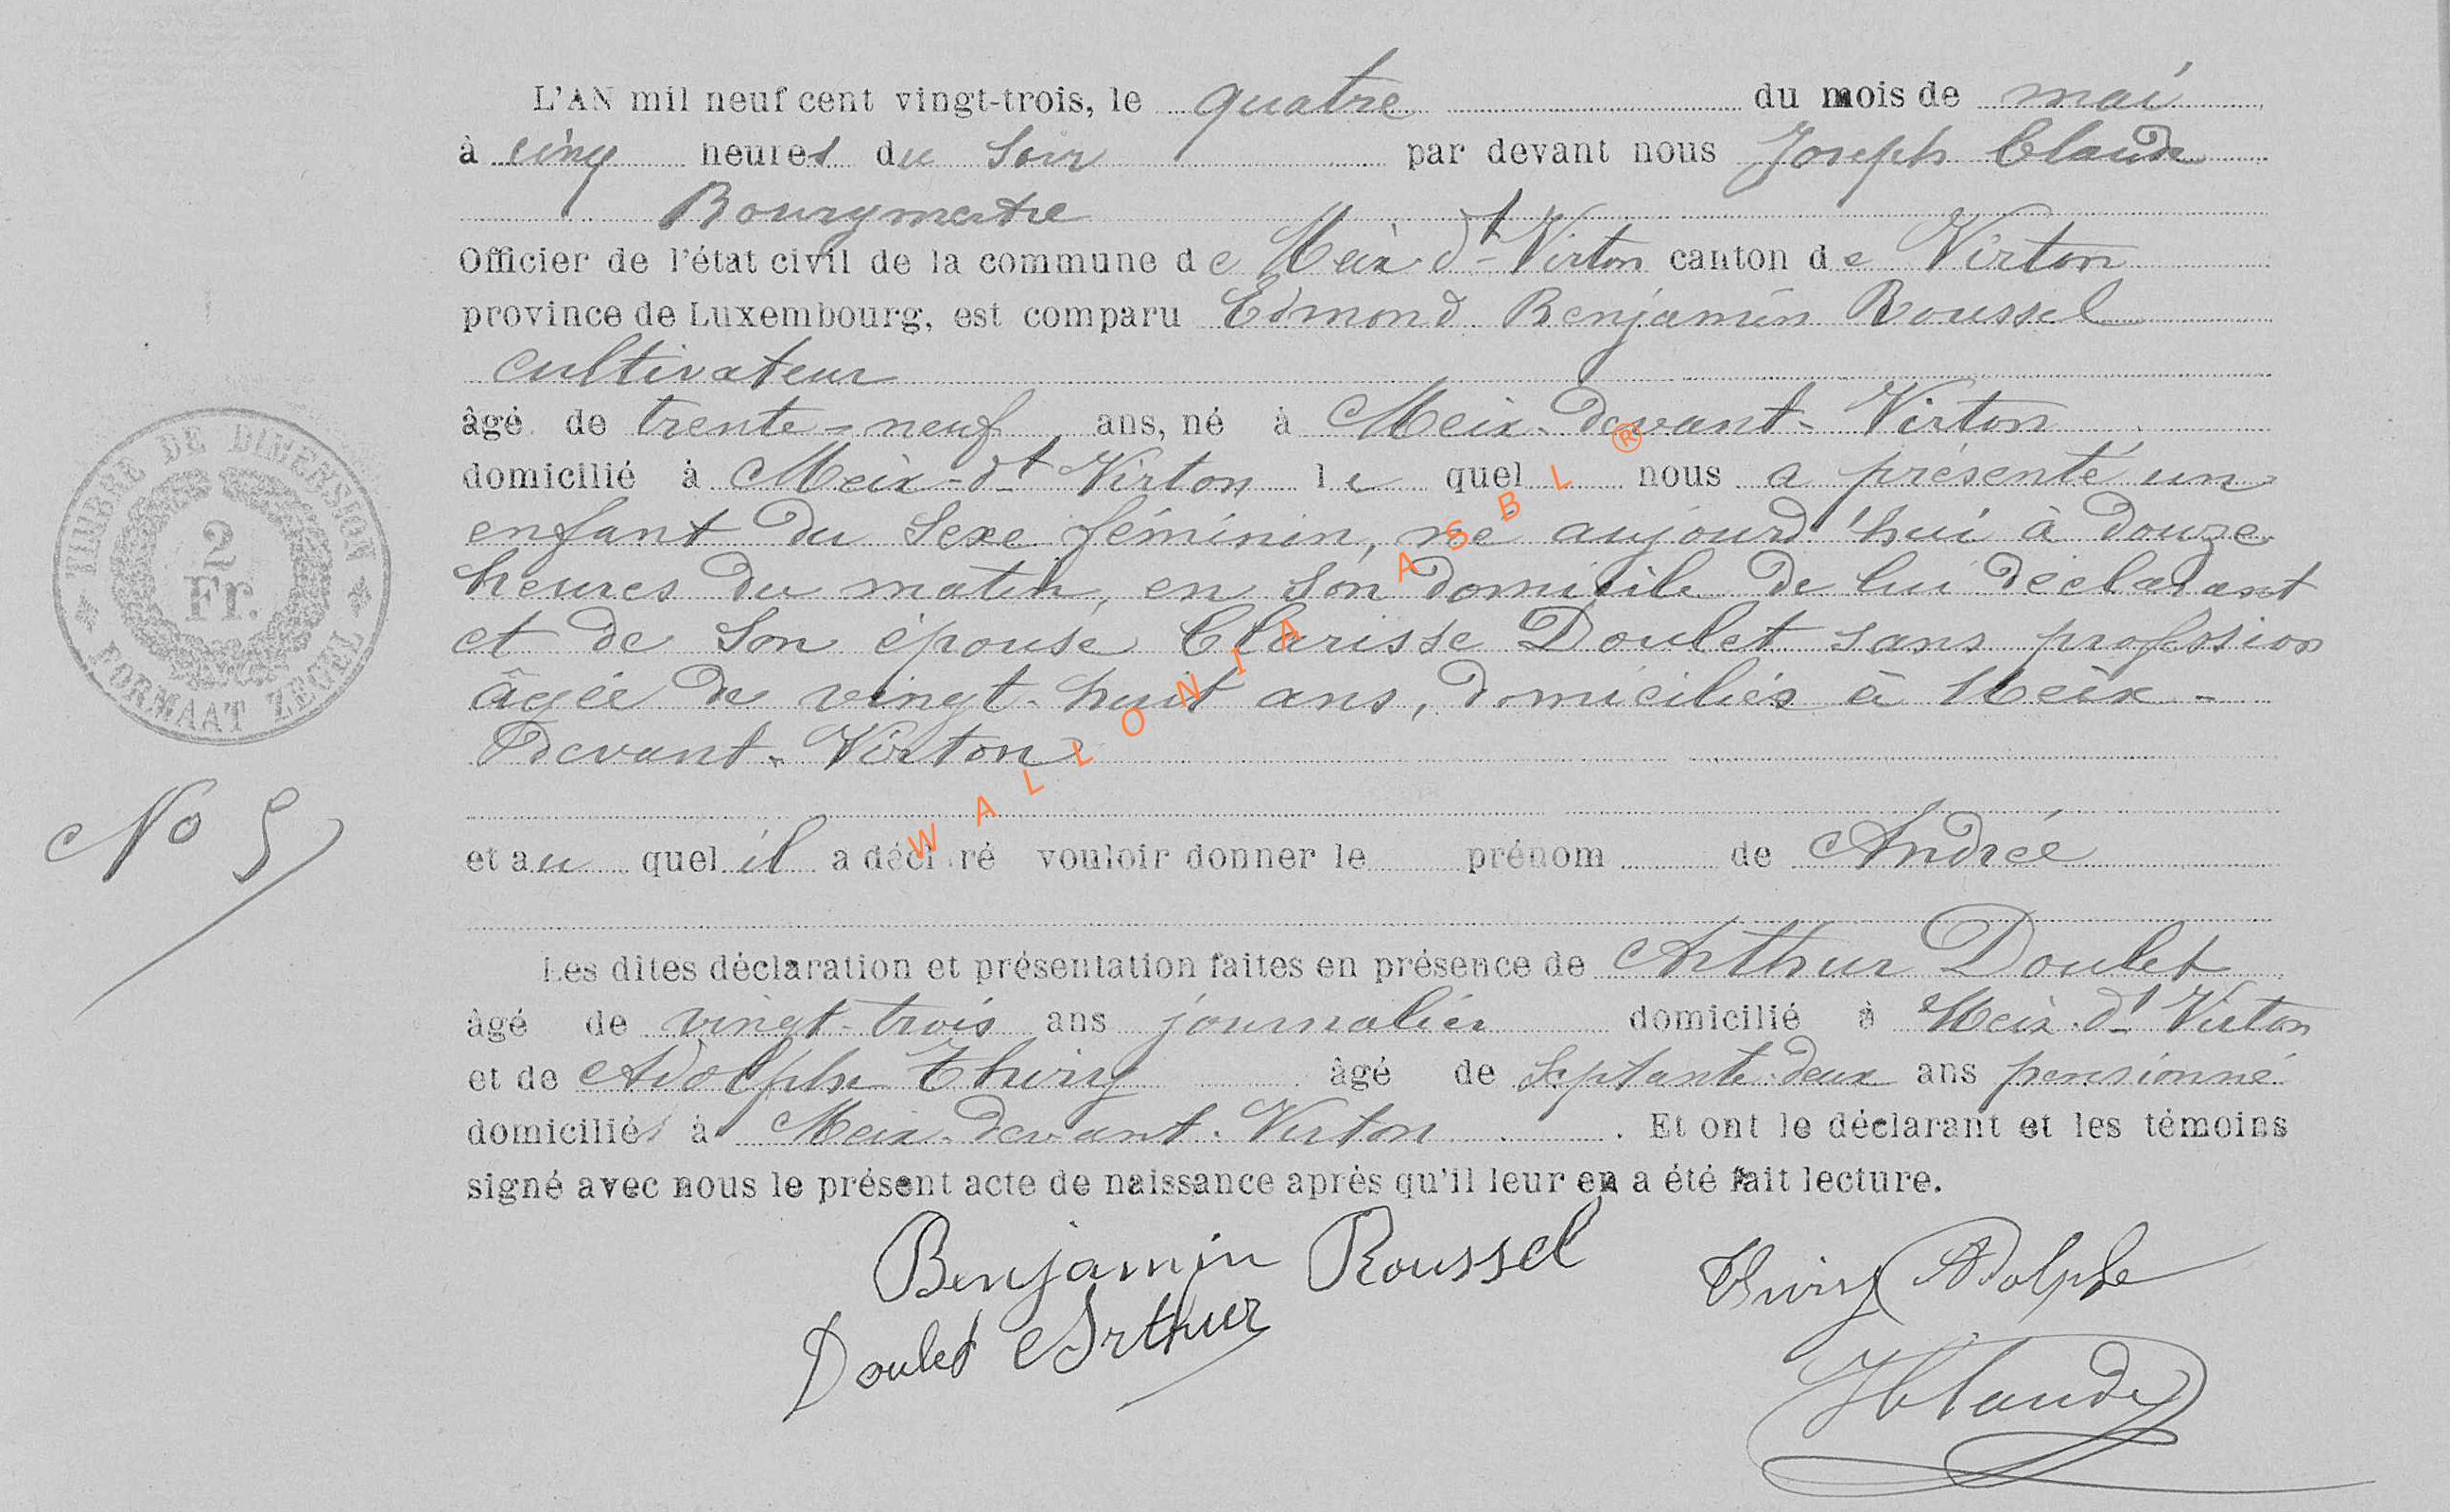 L'AN mil neuf cent vingt-trois, le quatre du mois de mai
à cinq heures du soir par devant nous Joseph Claude
Bourgmestre
Officier de l'état civil de la commune de Meix-dt-Virton canton de Virton
province de Luxembourg, est comparu Edmond Benjamin Roussel
cultivateur
âgé de trente-neuf ans, né à Meix-devant-Virton
domicilié à Meix-dt Virton le quel nous a présenté un
enfant du sexe féminin, né aujourd'hui à douze
heures du matin, en son domicile de lui déclarant
et de son épouse Clarisse Doulet sans profession
âgée de vingt-huit ans, domiciliés à Meix-
Devant-Virton
et au quel il a décl ré vouloir donner le prénom de Andrée
Les dites déclaration et présentation faites en présence de Arthur Doulet
âgé de vingt-trois ans journalier domicilié à Meix-dt Virton
et de Adolphe Thiry âgé de septante-deux ans pensionné
domiciliés à Meix-devant-Virton. Et ont le déclarant et les témoins
signé avec nous le présent acte de naissance après qu'il leur en a été fait lecture.
Benjamin Roussel
Thiry Adolphe
Doulet Arthur
J Claude
TIMBRE DE DIMENSION
2
Fr.
FORMAAT ZEGEL
No 5
WALLONIA ASBL ®